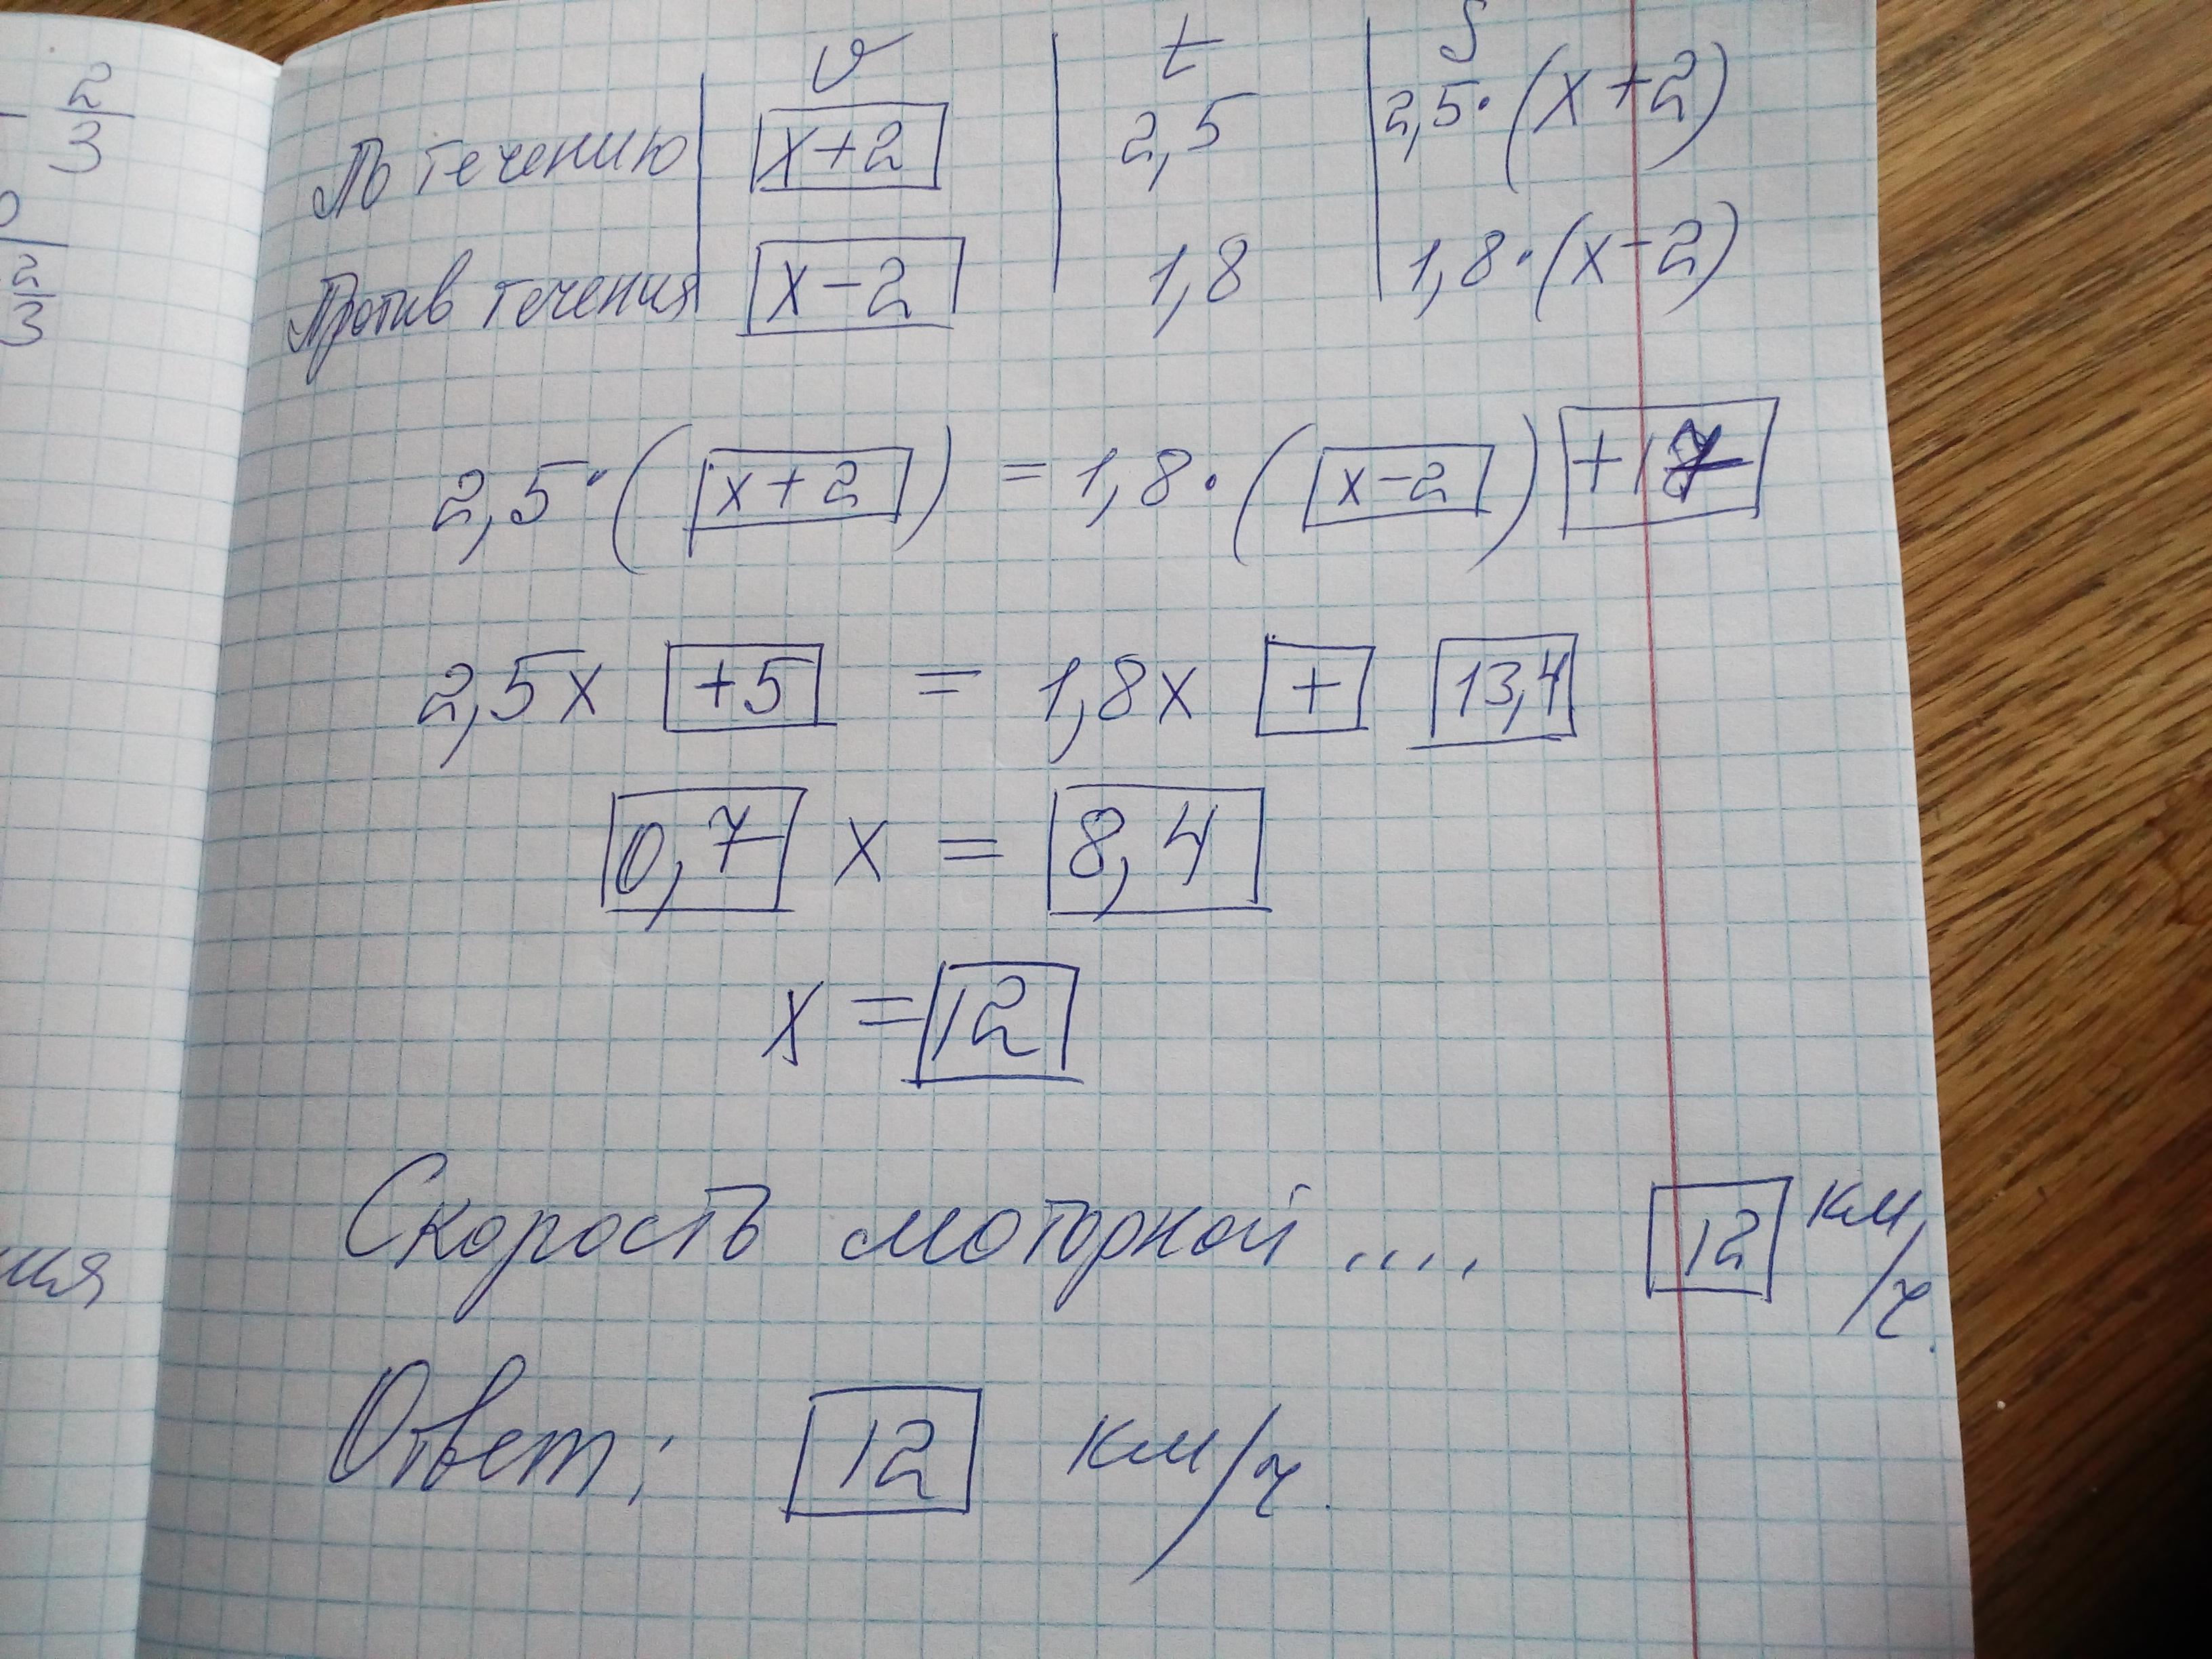 2/3
2/3
ия
v | t | S
По течению | x+2 | 2,5 | 2,5·(x+2)
Против течения | x-2 | 1,8 | 1,8·(x-2)
2,5·(x+2) = 1,8·(x-2) +17
2,5x +5 = 1,8x + 13,4
0,7 x = 8,4
x = 12
Скорость моторной .... 12 км/ч.
Ответ: 12 км/ч.